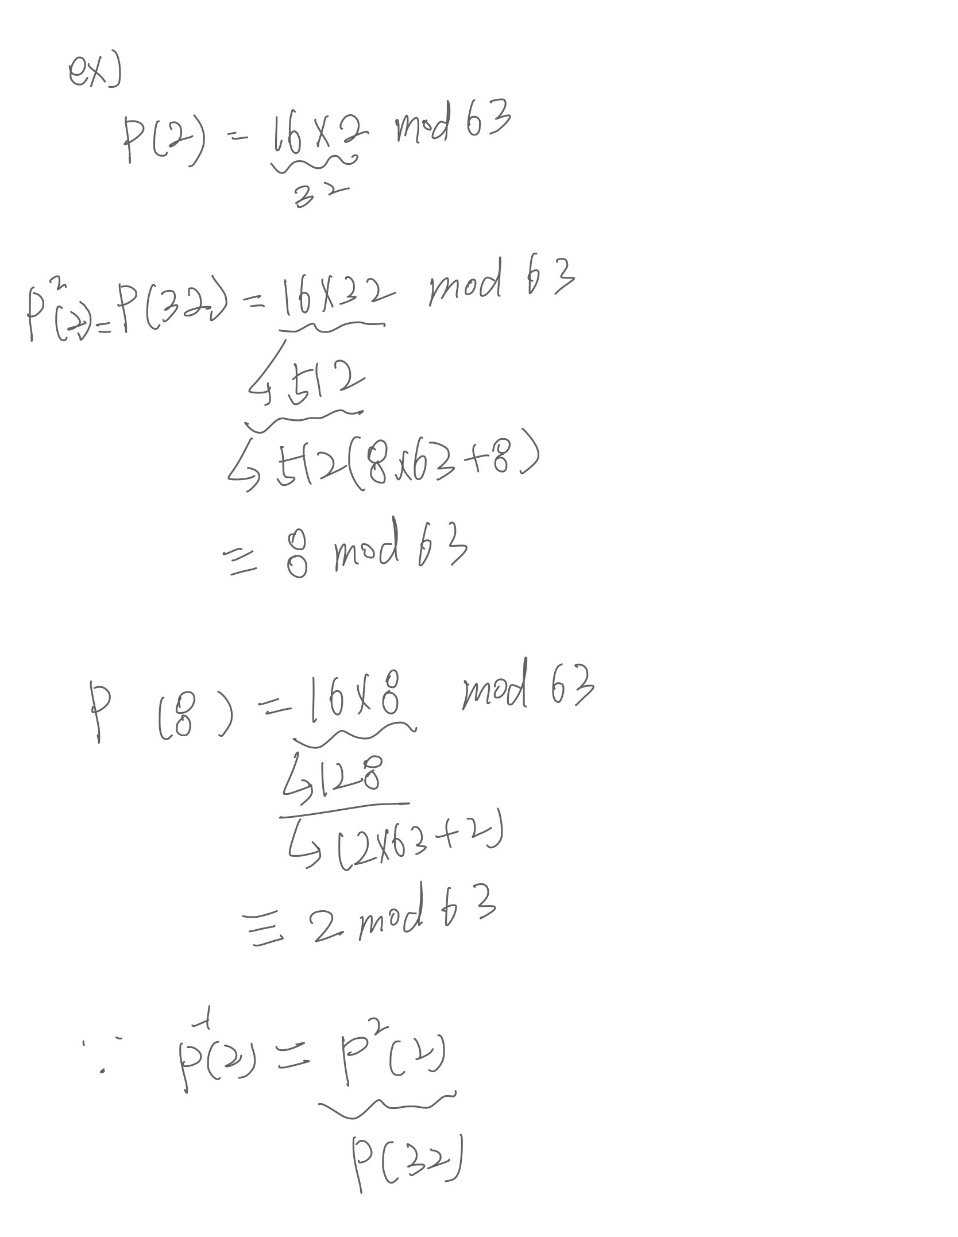 ex)
P(2) = 16×2 mod 63
32
P²(2)=P(32) = 16×32 mod 63
↳ 512
↳ 512(8×63+8)
≡ 8 mod 63
P (8) = 16×8 mod 63
↳128
↳ (2×63+2)
≡ 2 mod 63
∵ P⁻¹(2) = P²(2)
P(32)